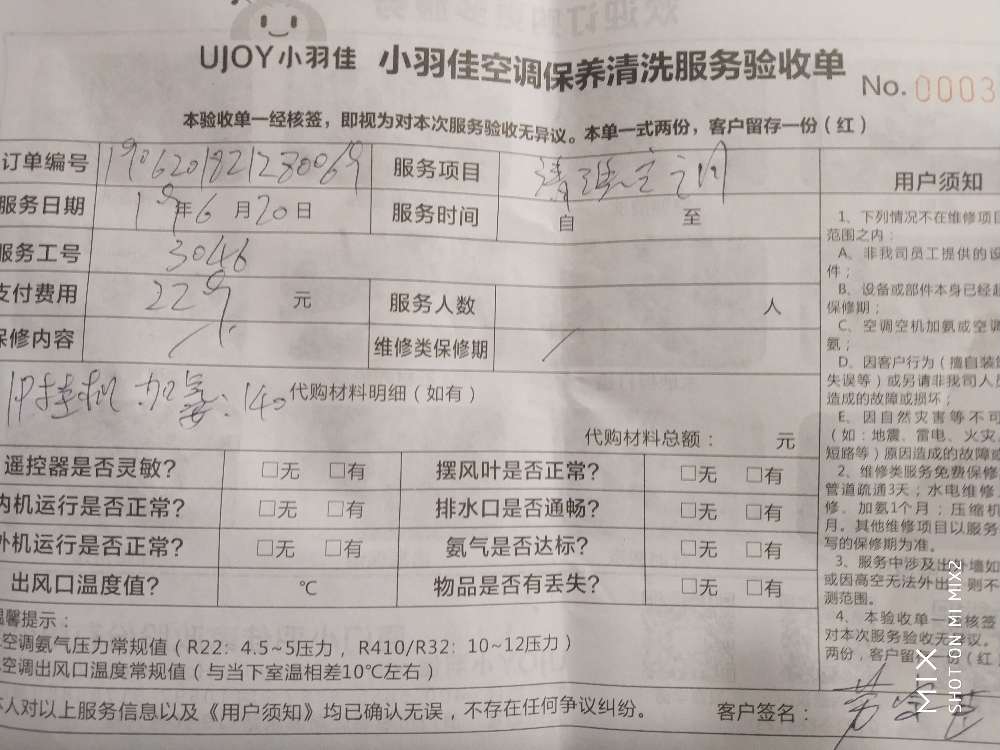 UJOY小羽佳 小羽佳空调保养清洗服务验收单
No. 0003
本验收单一经核签，即视为对本次服务验收无异议。本单一式两份，客户留存一份（红）
订单编号 190620182128006 服务项目 清洗空调
服务日期 19年6月20日 服务时间 自 至
服务工号 3046
支付费用 229 元 服务人数 人
保修内容 / 维修类保修期 /
1P挂机 加氨：140 代购材料明细（如有）
代购材料总额： 元
遥控器是否灵敏? □无 □有 摆风叶是否正常? □无 □有
内机运行是否正常? □无 □有 排水口是否通畅? □无 □有
外机运行是否正常? □无 □有 氨气是否达标? □无 □有
出风口温度值? ℃ 物品是否有丢失? □无 □有
温馨提示：
空调氨气压力常规值（R22：4.5~5压力，R410/R32：10~12压力）
空调出风口温度常规值（与当下室温相差10℃左右）
本人对以上服务信息以及《用户须知》均已确认无误，不存在任何争议纠纷。 客户签名：
用户须知
1、下列情况不在维修项目
范围之内：
A、非我司员工提供的设
件；
B、设备或部件本身已经超
保修期；
C、空调空机加氨或空调
氨；
D、因客户行为（擅自装
失误等）或另请非我司人员
造成的故障或损坏；
E、因自然灾害等不可
（如：地震、雷电、火灾、
短路等）原因造成的故障或
2、维修类服务免费保修
管道疏通3天；水电维修
修、加氨1个月；压缩机
月。其他维修项目以服务
写的保修期为准。
3、服务中涉及出外墙如
或因高空无法外出，则不
测范围。
4、本验收单一经核签
对本次服务验收无异议。
两份，客户留存一份（红
MIX
SHOT ON MI MIX2